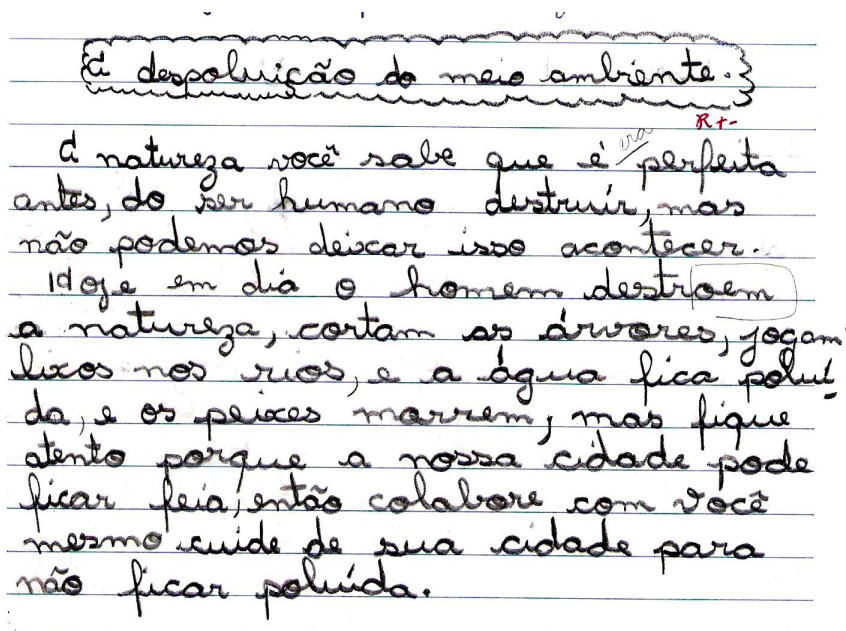 A despoluição do meio ambiente.
R+-
era
A natureza você sabe que é perfeita
antes, do ser humano destruír, mas
não podemos deixar isso acontecer.
Hoje em dia o homem destroem
a natureza, cortam as árvores, jogam
lixos nos rios, e a água fica poluí
da, e os peixes morrem, mas fique
atento porque a nossa cidade pode
ficar feia, então colabore com você
mesmo cuide de sua cidade para
não ficar poluída.